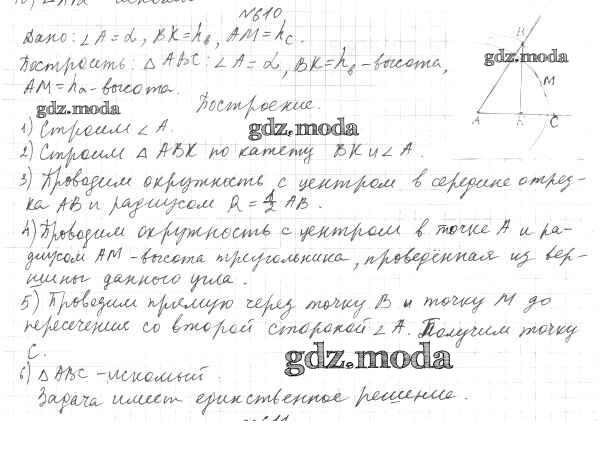 №610
Дано: ∠A = α, BK = h_b, AM = h_c.
Построить: △ABC: ∠A = α, BK = h_b - высота,
AM = h_a - высота.
Построение.
1) Строим ∠A.
2) Строим △ABK по катету BK и ∠A.
3) Проводим окружность с центром в середине отрез-
ка AB и радиусом R = 1/2 AB.
4) Проводим окружность с центром в точке A и ра-
диусом AM - высота треугольника, проведённая из вер-
шины данного угла.
5) Проводим прямую через точку B и точку M до
пересечения со второй стороной ∠A. Получим точку
C.
6) △ABC - искомый.
Задача имеет единственное решение.
B
M
A
K
C
gdz.moda
gdz.moda
gdz.moda
gdz.moda